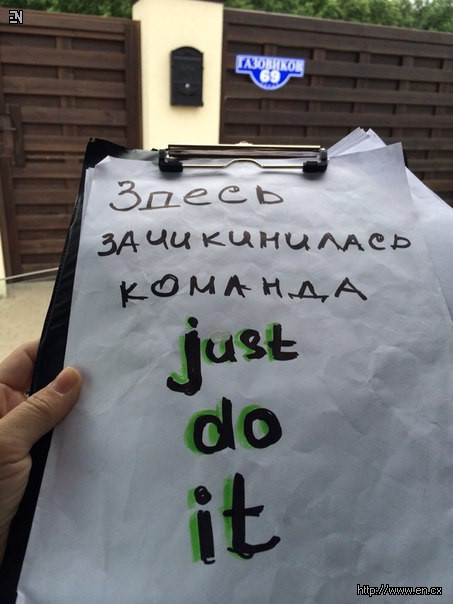 EN
ГАЗОВИКОВ
69
Здесь
ЗАЧИКИНИЛАСЬ
КОМАНДА
just
do
it
http://www.en.cx